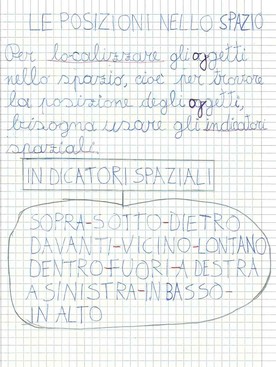 LE POSIZIONI NELLO SPAZIO
Per localizzare gli oggetti
nello spazio, cioè per trovare
la posizione degli oggetti,
bisogna usare gli indicatori
spaziali.
INDICATORI SPAZIALI
SOPRA-SOTTO-DIETRO
DAVANTI-VICINO-LONTANO
DENTRO-FUORI-A DESTRA
A SINISTRA-IN BASSO-
IN ALTO